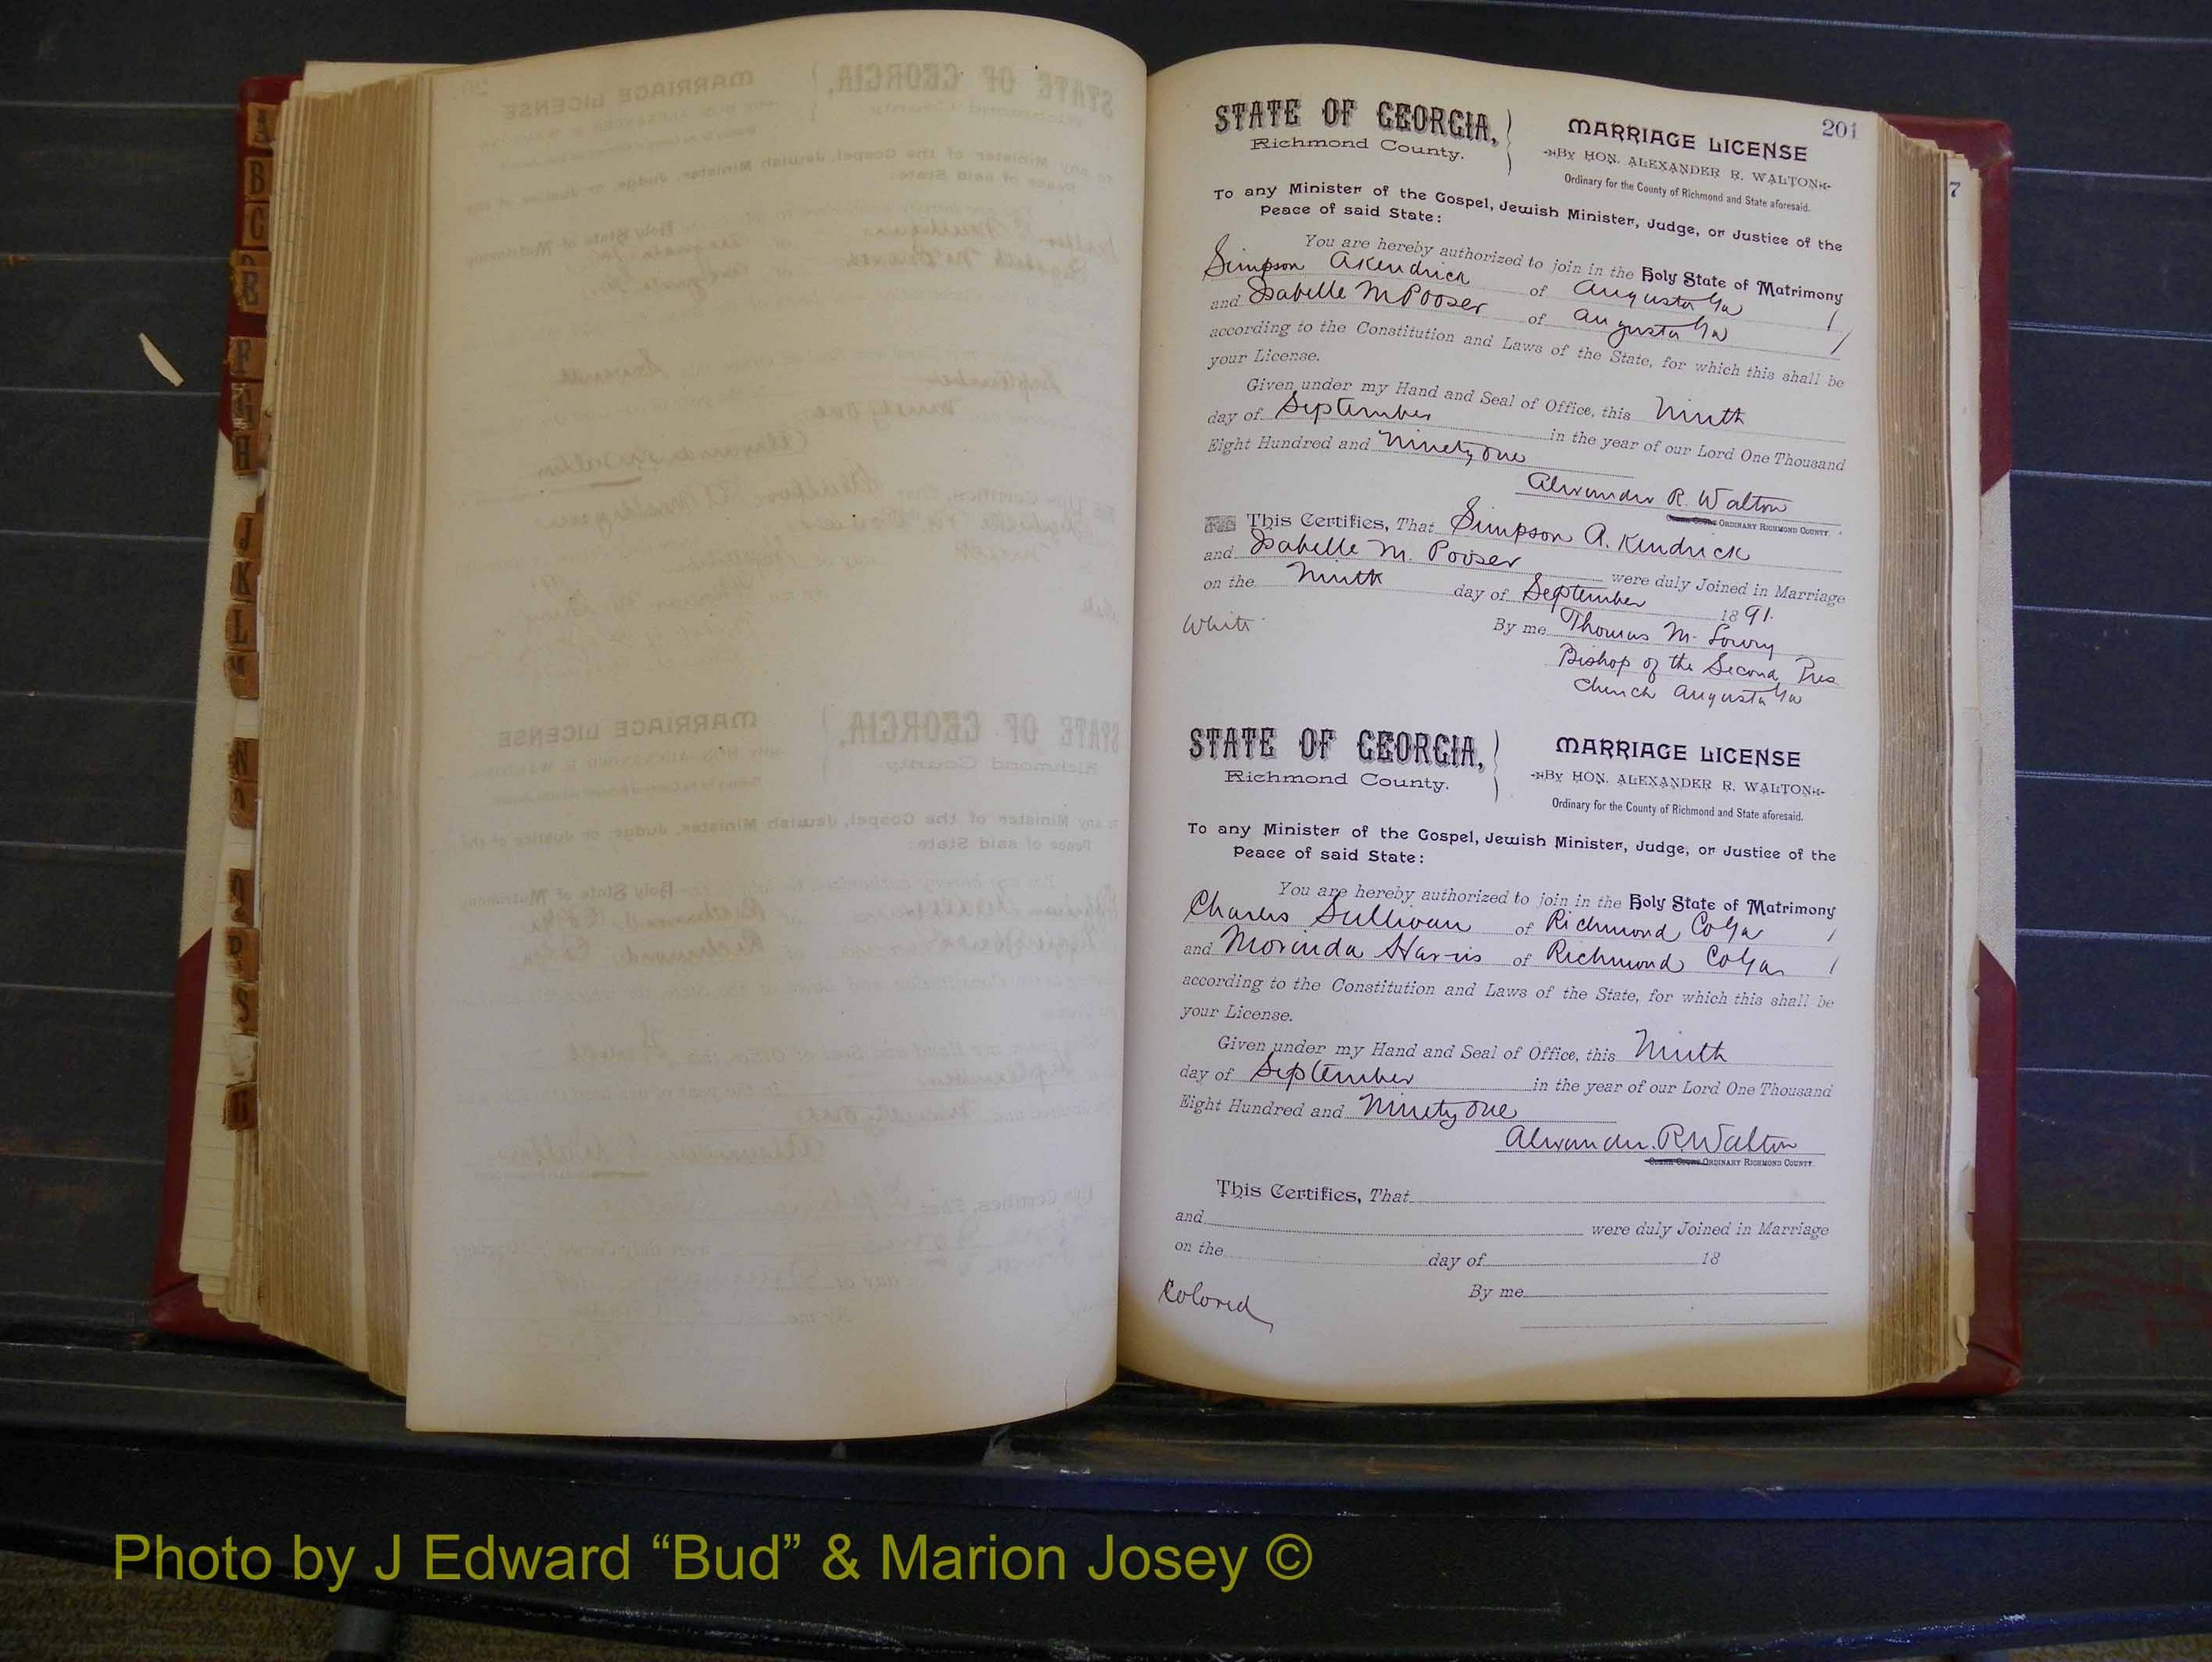 201
STATE OF GEORGIA,
Richmond County.
MARRIAGE LICENSE
By HON. ALEXANDER R. WALTON
Ordinary for the County of Richmond and State aforesaid.
To any Minister of the Gospel, Jewish Minister, Judge, or Justice of the
Peace of said State:
You are hereby authorized to join in the Holy State of Matrimony
Simpson A Kendrick of Augusta Ga
and Isabelle M Pooser of Augusta Ga
according to the Constitution and Laws of the State, for which this shall be
your License.
Given under my Hand and Seal of Office, this Ninth
day of September in the year of our Lord One Thousand
Eight Hundred and Ninety One
Alexander R. Walton
ORDINARY RICHMOND COUNTY.
This Certifies, That Simpson A. Kendrick
and Isabelle M. Pooser were duly Joined in Marriage
on the Ninth day of September 1891.
White
By me Thomas M. Lowry
Bishop of the Second Pres
Church Augusta Ga
STATE OF GEORGIA,
Richmond County.
MARRIAGE LICENSE
By HON. ALEXANDER R. WALTON
Ordinary for the County of Richmond and State aforesaid.
To any Minister of the Gospel, Jewish Minister, Judge, or Justice of the
Peace of said State:
You are hereby authorized to join in the Holy State of Matrimony
Charles Sullivan of Richmond Co Ga
and Morinda Harris of Richmond Co Ga
according to the Constitution and Laws of the State, for which this shall be
your License.
Given under my Hand and Seal of Office, this Ninth
day of September in the year of our Lord One Thousand
Eight Hundred and Ninety One
Alexander R. Walton
ORDINARY RICHMOND COUNTY.
This Certifies, That
and were duly Joined in Marriage
on the day of 18
Colored
By me
7
A
B
C
E
F
G
H
J
K
L
M
N
O
P
S
Photo by J Edward “Bud” & Marion Josey ©